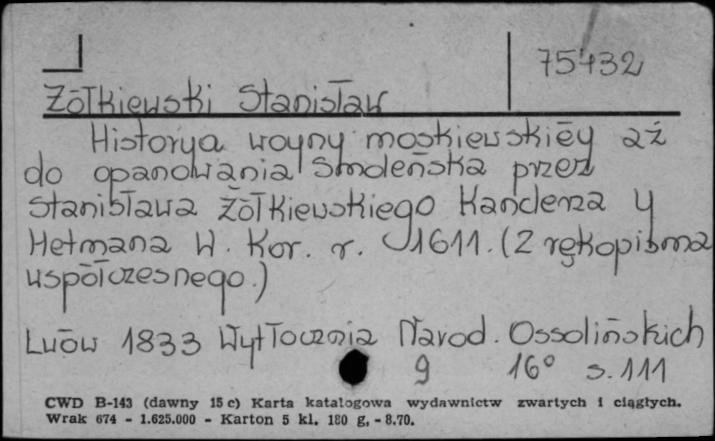 75432
Żółkiewski Stanisław
Historya woyny moskiewskiéy aż
do opanowania Smoleńska przez
Stanisława Żółkiewskiego Kanclerza y
Hetmana W. Kor. r. 1611. (Z rękopisma
współczesnego.)
Lwów 1833 Wytłocznia Narod. Ossolińskich
9 16° s. 111
CWD B-143 (dawny 15 c) Karta katalogowa wydawnictw zwartych i ciągłych.
Wrak 674 - 1.625.000 - Karton 5 kl. 180 g. - 8.70.